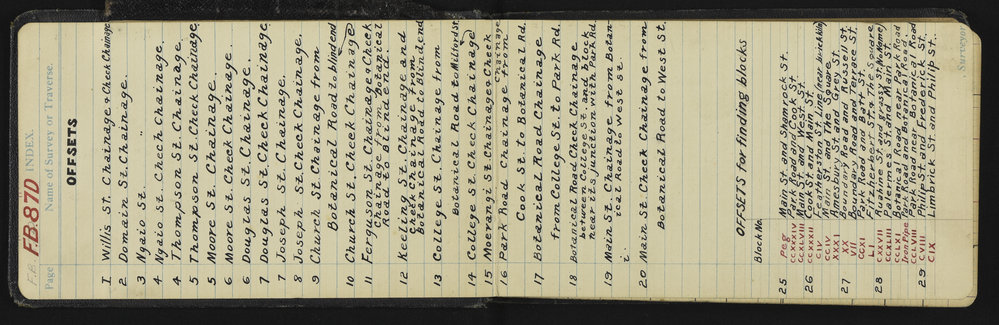 F.B. FB.87D INDEX.
Page Name of Survey or Traverse. Surveyor
OFFSETS
1 Willis St. Chainage & Check Chainage
2 Domain St. Chainage.
3 Ngaio St. " .
4 Ngaio St. Check Chainage.
4 Thompson St. Chainage.
5 Thompson St. Check Chainage
5 Moore St. Chainage.
6 Moore St. Check Chainage.
6 Douglas St. Chainage.
7 Douglas St. Check Chainage.
7 Joseph St. Chainage.
8 Joseph St. Check Chainage.
9 Church St Chainage from
Botanical Road to blind end
10 Church St. Check Chainage
11 Ferguson St Chainage & Check
Chainage from Botanical
Road to Blind end
12 Keeling St. Chainage and
Check Chainage from
Botanical Road to Blind end
13 College St Chainage from
Botanical Road to Milford St.
14 College St Check Chainage
15 Moerangi St Chainage & Check
16 Park Road Chainage from
Cook St to Botanical Rd.
17 Botanical Road Chainage
from College St. to Park Rd.
18 Botanical Road Check Chainage
between College St. and block
near its junction with Park Rd.
19 Main St. Chainage from Botan-
ical Road to West St.
20 Main St Check Chainage from
Botanical Road to West St.
OFFSETS for finding blocks
Block No.
25 Peg Main St. and Shamrock St.
CCXXXIV Park Road and Cook St.
CCXLVIII Main St. and West St.
26 CCXXXII Cook St. and Main St.
CIV Featherston St. Line (near brick kiln)
CCIV Main St. and The Square
XXVI Amesbury St. and Grey St.
27 XX Boundary Road and Russell St.
VII Boundary Road and Terrace St.
CCXI Park Road and Batt St.
LI Fitzherbert St. & The Square
28 CXXVII Ruahine St and Forrest St. (No Name)
CCLII Palermes St. and Main St.
CCLXI Botanical Road near Park Road
Iron Pipe Park Road and Botanical Road
CCLVIII Park Road near Botanical Road
29 CVIII Philip St. and Frederick St.
CIX Limbrick St. and Philip St.